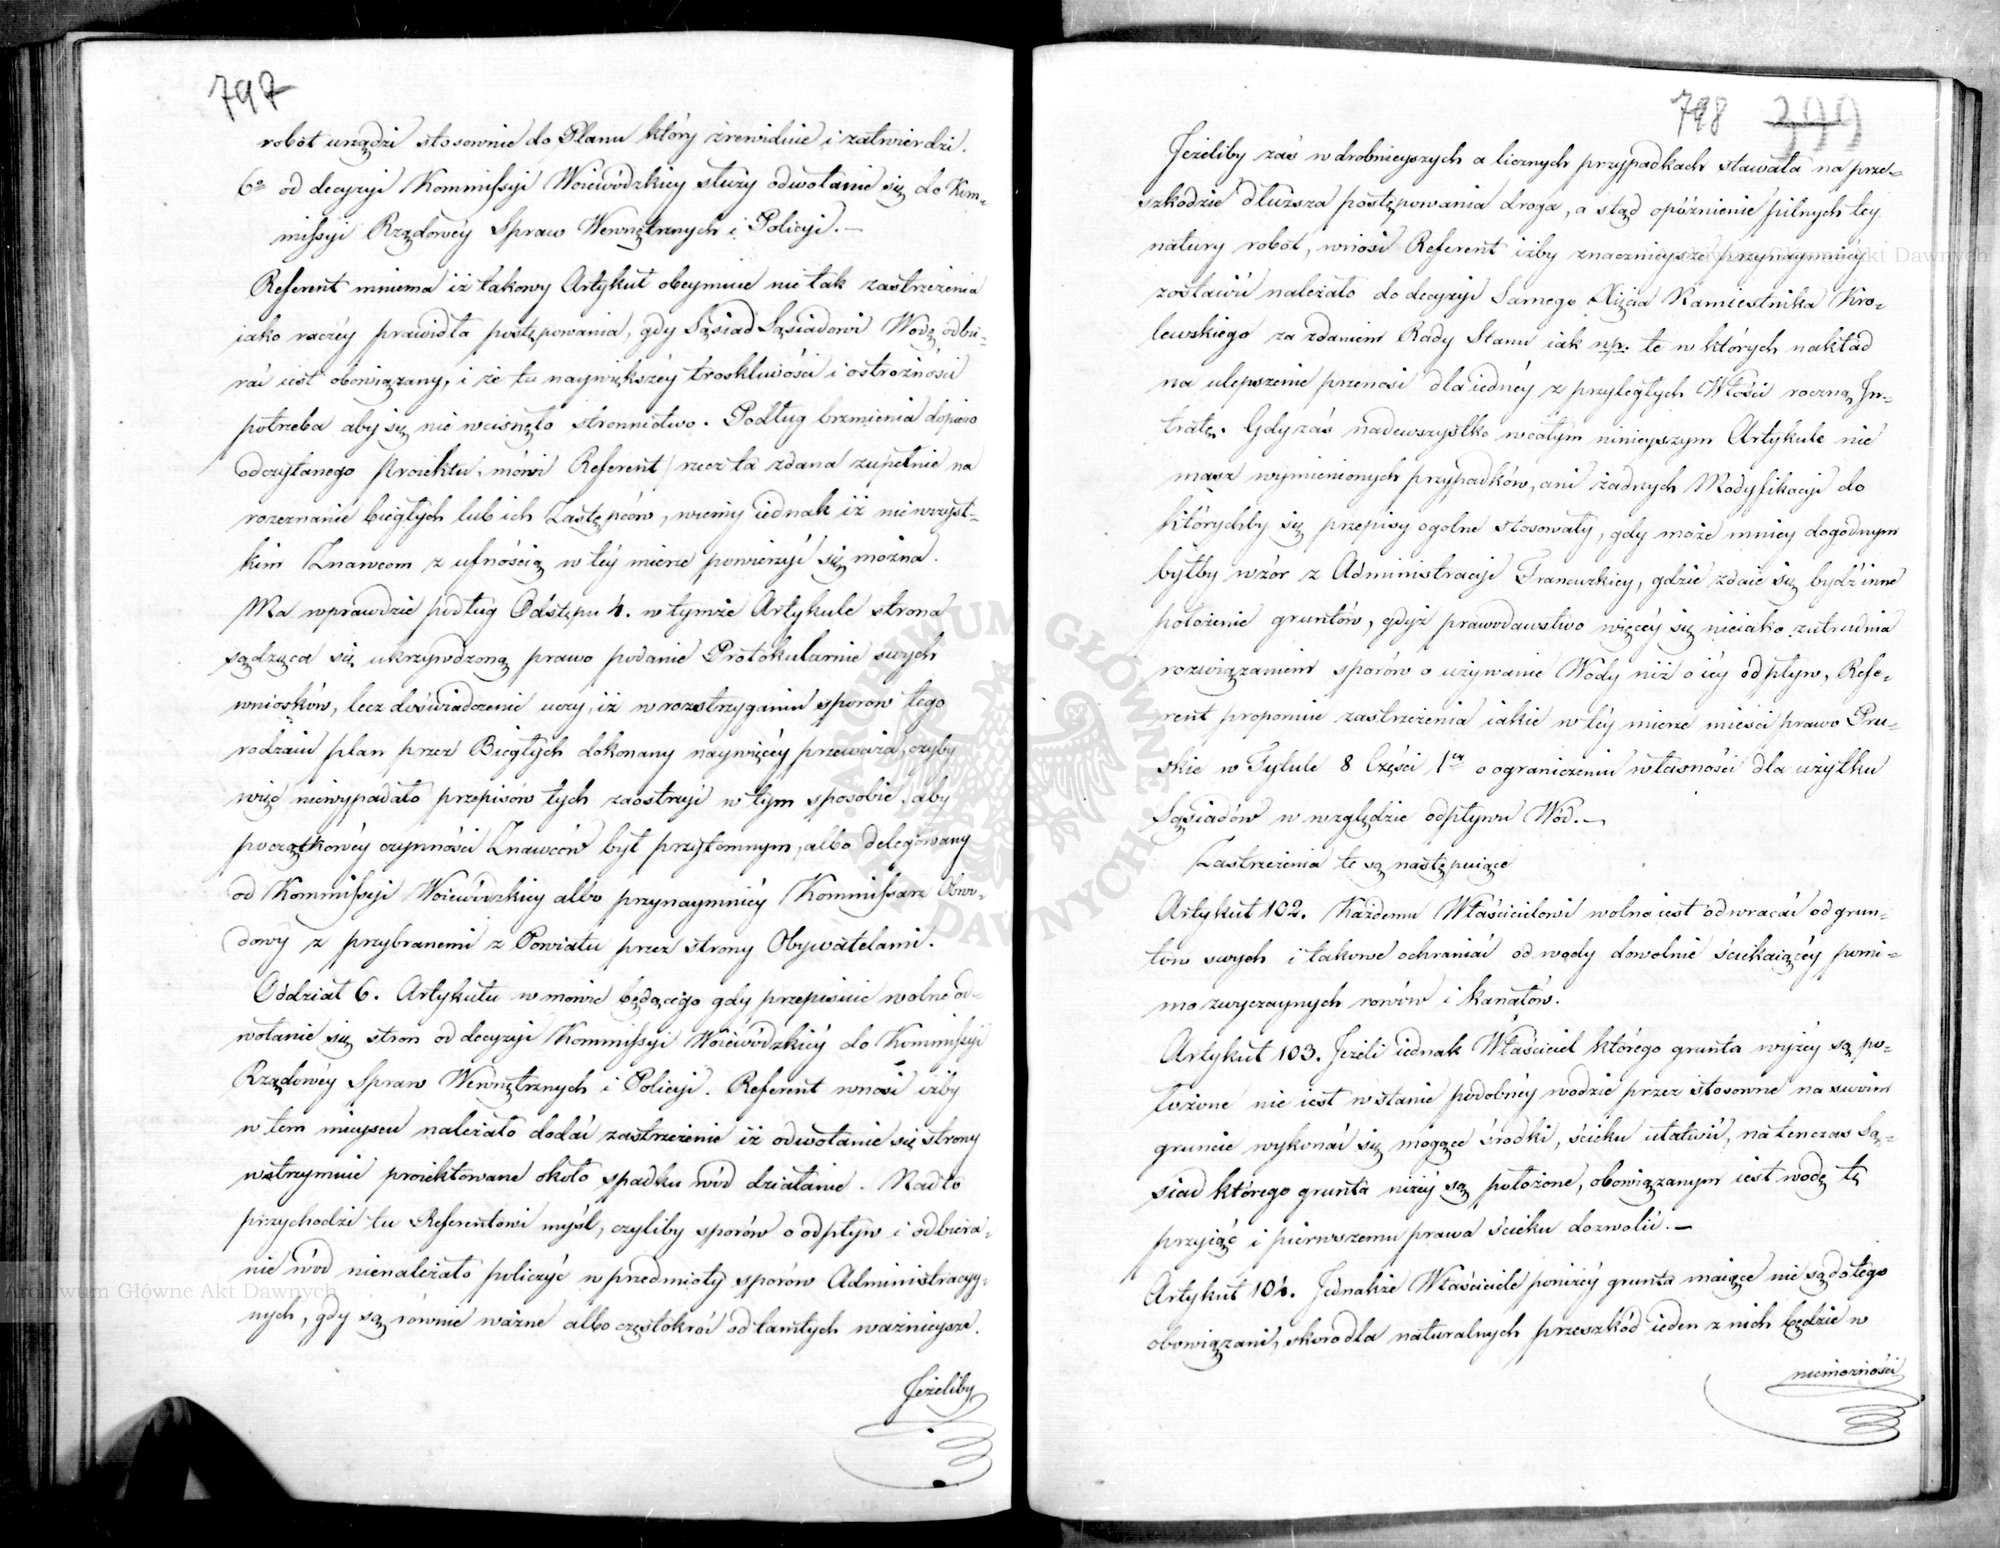 797
robót urządzi stosownie do Planu który zrewiduie i zatwierdzi.
6° od decyzyi Kommissyi Woiewódzkiey służy odwołanie się do Kom-
missyi Rządowéy Spraw Wewnętrznych i Policyi. —
Referent mniema iż takowy Artykuł obeymuie nie tak zastrzeżenia
iako raczéy prawidła postępowania, gdy Sąsiad Sąsiadowi Wodę odbie-
rać iest obowiązany, i że tu naywiększéy troskliwości i ostrożności
potrzeba aby się nie wcisnęło stronnictwo. Podług brzmienia dopiero
odczytanego Proiektu, mówi Referent, rzecz ta zdana zupełnie na
rozeznanie biegłych lub ich Zastępców, wiemy iednak iż nie wszyst-
kim Znawcom z ufnością w téy mierze powierzyć się można.
Ma wprawdzie podług Odstępu 4. w tymże Artykule strona
sądząca się ukrzywdzoną prawo podanie Protokularnie swych
wniosków, lecz doświadczenie uczy, iż w rozstrzyganiu sporów tego
rodzaiu plan przez Biegłych dokonany naywięcéy przeważa, czyby
więc niewypadało przepisów tych zaostrzyć w tym sposobie, aby
początkowéy czynności Znawców był przytomnym, albo delegowany
od Kommissyi Woiewódzkiey albo przynaymniéy Kommissarz Obwo-
dowy z przybranemi z Powiatu przez strony Obywatelami.
Oddział 6. Artykułu w mowie będącego gdy przepisuie wolne od-
wołanie się stron od decyzyi Kommissyi Woiewódzkiéy do Kommissyi
Rządowéy Spraw Wewnętrznych i Policyi. Referent wnosi iżby
w tem mieyscu należało dodać zastrzeżenie iż odwołanie się strony
wstrzymuie proiektowane około spadku wód działanie. Nadto
przychodzi tu Referentowi myśl, czyliby sporów o odpływ i odbiera-
nie wód nienależało policzyć w przedmioty sporów Administracyy-
nych, gdy są równie ważne albo częstokroć od tamtych ważnieysze.
Jeżeliby
798 399
Jeżeliby zaś w drobnieyszych a licznych przypadkach stawała na prze-
szkodzie dłuższa postępowania droga, a stąd opóźnienie pilnych tey
natury robót, wnosi Referent iżby znacznieysze przynaymniéy
zostawić należało do decyzyi Samego Xięcia Namiestnika Kró-
lewskiego za zdaniem Rady Stanu iak np. te w których nakład
na ulepszenie przenosi dla iednéy z przyległych Włości roczną In-
tratę. Gdy zaś nadewszystko w całym ninieyszym Artykule nie
masz wymienionych przypadków, ani żadnych Modyfikacyi do
którychby się przepisy ogólne stosowały, gdy może mniey dogodnym
byłby wzór z Administracyi Francuzkiey, gdzie zdaie się bydź inne
położenie gruntów, gdyż prawodawstwo więcéy się nieiako zatrudnia
rozwiązaniem sporów o używanie Wody niż o iéy odpływ, Refe-
rent proponuie zastrzeżenia iakie w téy mierze mieści prawo Pru-
skie w Tytule 8 Części 1ey o ograniczeniu własności dla użytku
Sąsiadów w względzie odpływu Wód. —
Zastrzeżenia te są następuiące
Artykuł 102. Każdemu Właścicielowi wolno iest odwracać od grun-
tów swych i takowe ochraniać od wody dowolnie ściekaiącéy pomi-
mo zwyczaynych rowów i kanałów.
Artykuł 103. Jeżeli iednak Właściciel którego grunta wyżéy są po-
łożone nie iest w stanie podobnéy wodzie przez stosowne na swoim
gruncie wykonać się mogące środki, ścieku ułatwić, natenczas Są-
siad którego grunta niżéy są położone, obowiązanym iest wodę tę
przyiąć i pierwszemu prawa ścieku dozwolić. —
Artykuł 104. Jednakże Właściciele poniżéy grunta maiące nie są do tego
obowiązani, skoro dla naturalnych przeszkód ieden z nich będzie w
niemożności
ARCHIWUM GŁÓWNE AKT DAWNYCH
Archiwum Główne Akt Dawnych
Archiwum Główne Akt Dawnych